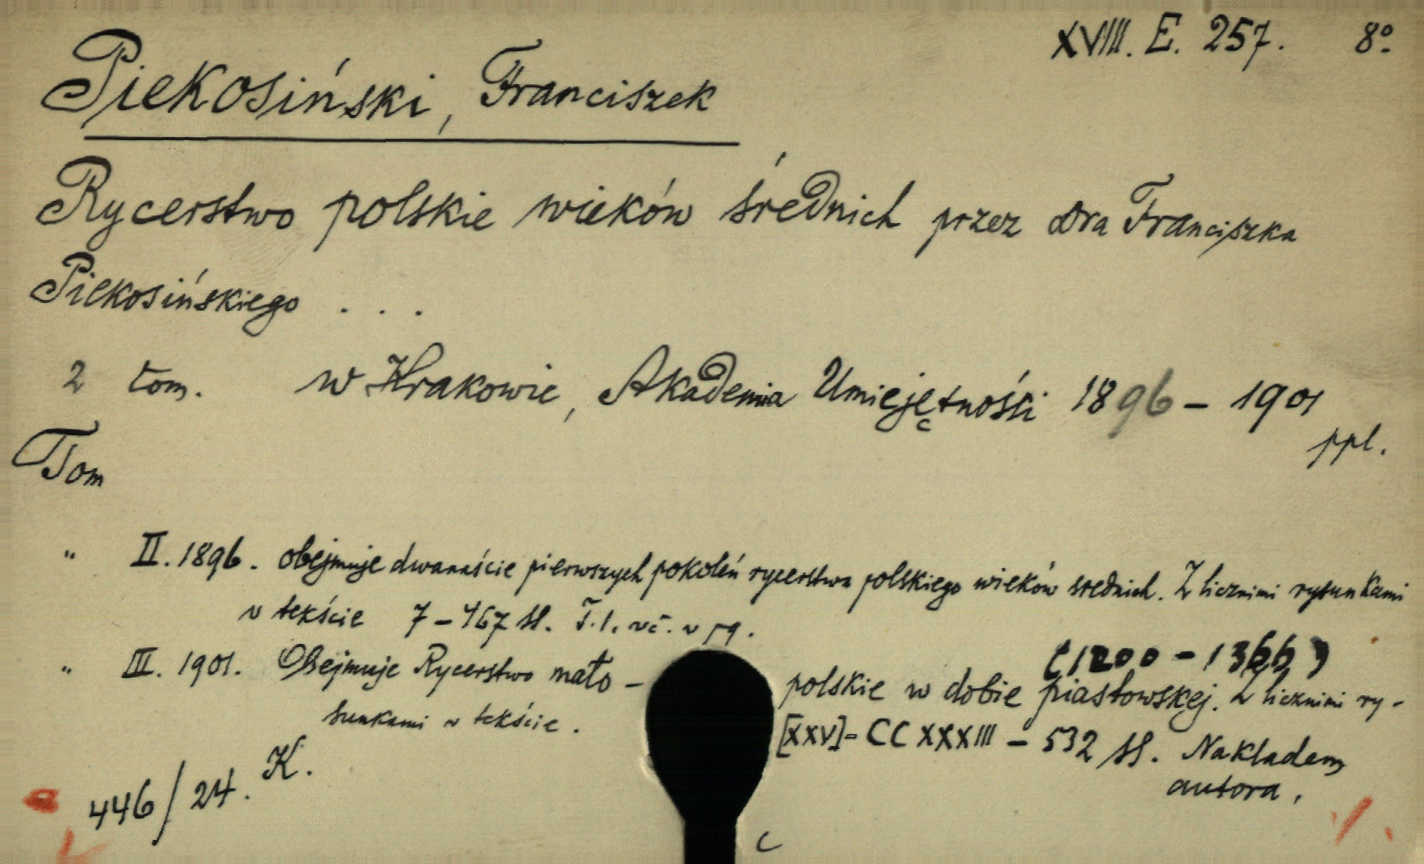 XVIII. E. 257. 8º
Piekosiński, Franciszek
Rycerstwo polskie wieków średnich przez Dra Franciszka
Piekosińskiego . . .
2 tom. w Krakowie, Akademia Umiejętnośći 1896 – 1901
ppl.
Tom
„ II. 1896. obejmuje dwanaście pierwszych pokoleń rycerstwa polskiego wieków srednich. Z licznimi rysunkami
v tekście 7 – 467 st.
„ III. 1901. Obejmuje Rycerstwo mało – polskie w dobie piastowskej. (1200 – 1366) Z licznimi ry-
sunkami v tekście. [XXV]- CCXXXIII – 532 st. Nakladem
autora.
446/24. K.